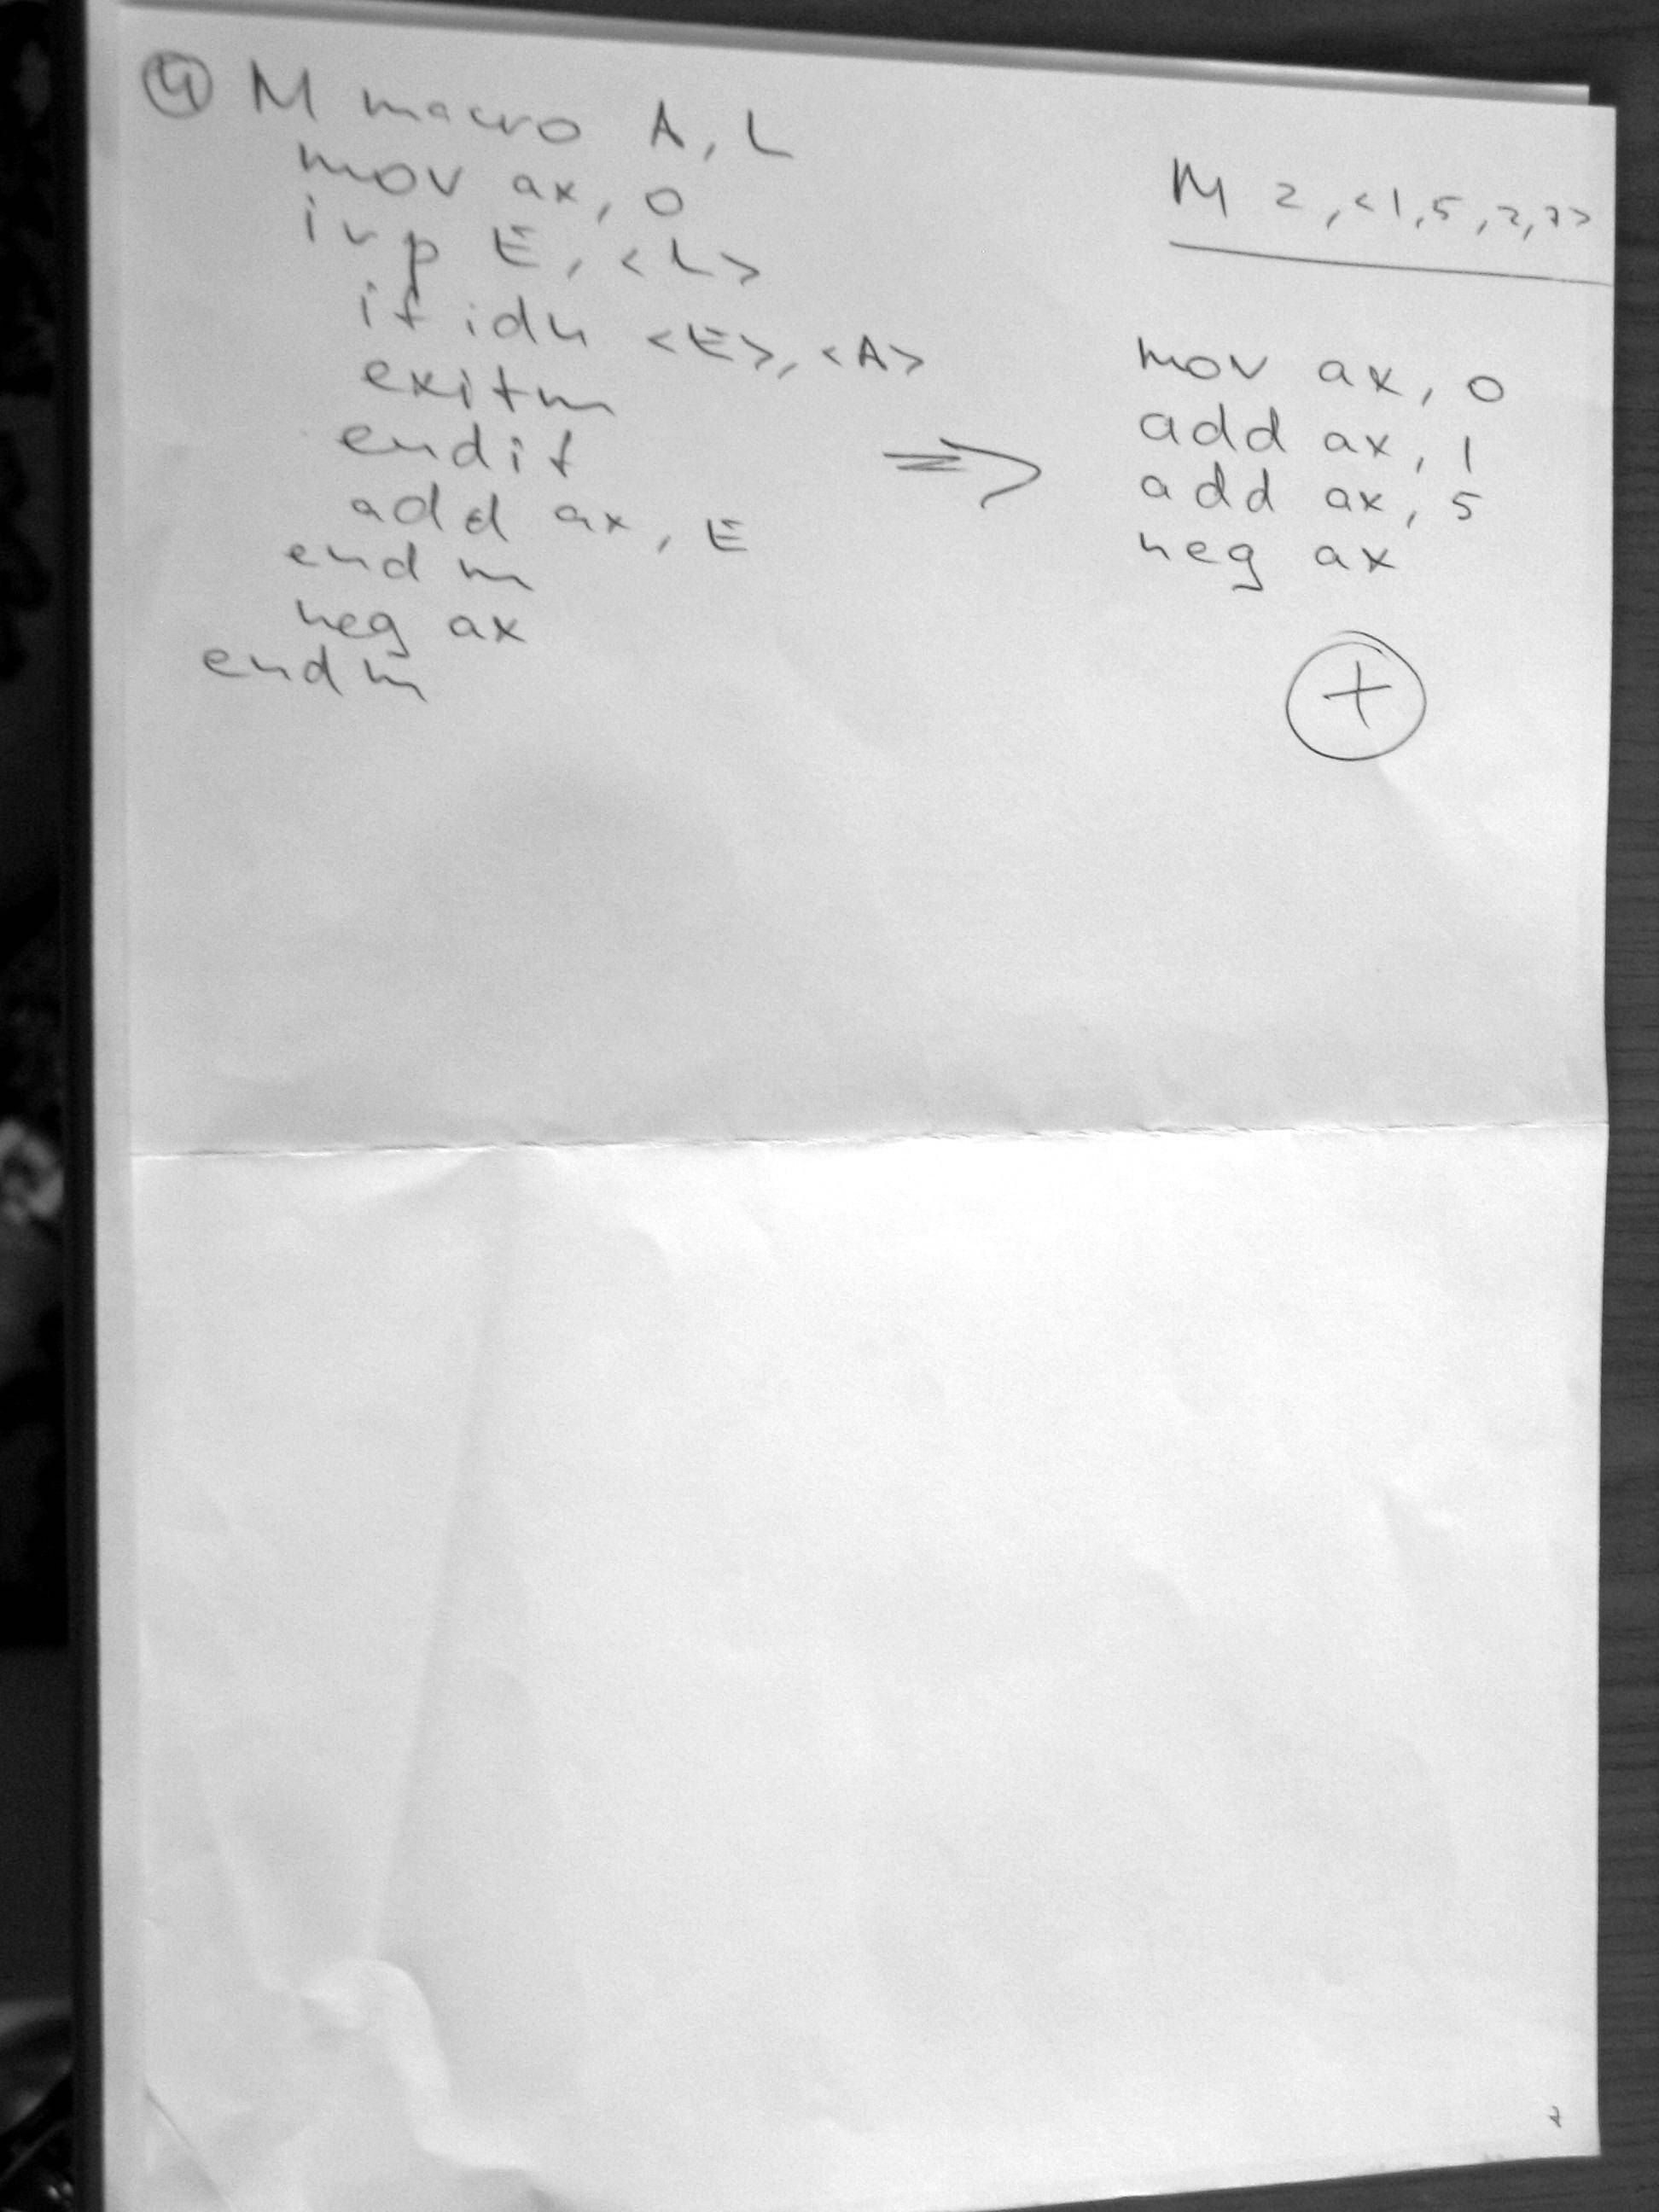 ④ M macro A, L
mov ax, 0
irp E, <L>
ifidn <E>, <A>
exitm
endif
add ax, E
endm
neg ax
endm
M 2, <1,5,2,7>
⇒
mov ax, 0
add ax, 1
add ax, 5
neg ax
+